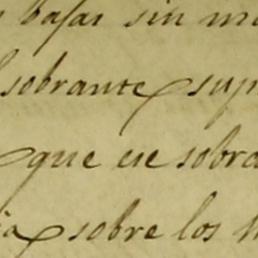 bajar sin
sobrante sup
que se sobra
sobre los